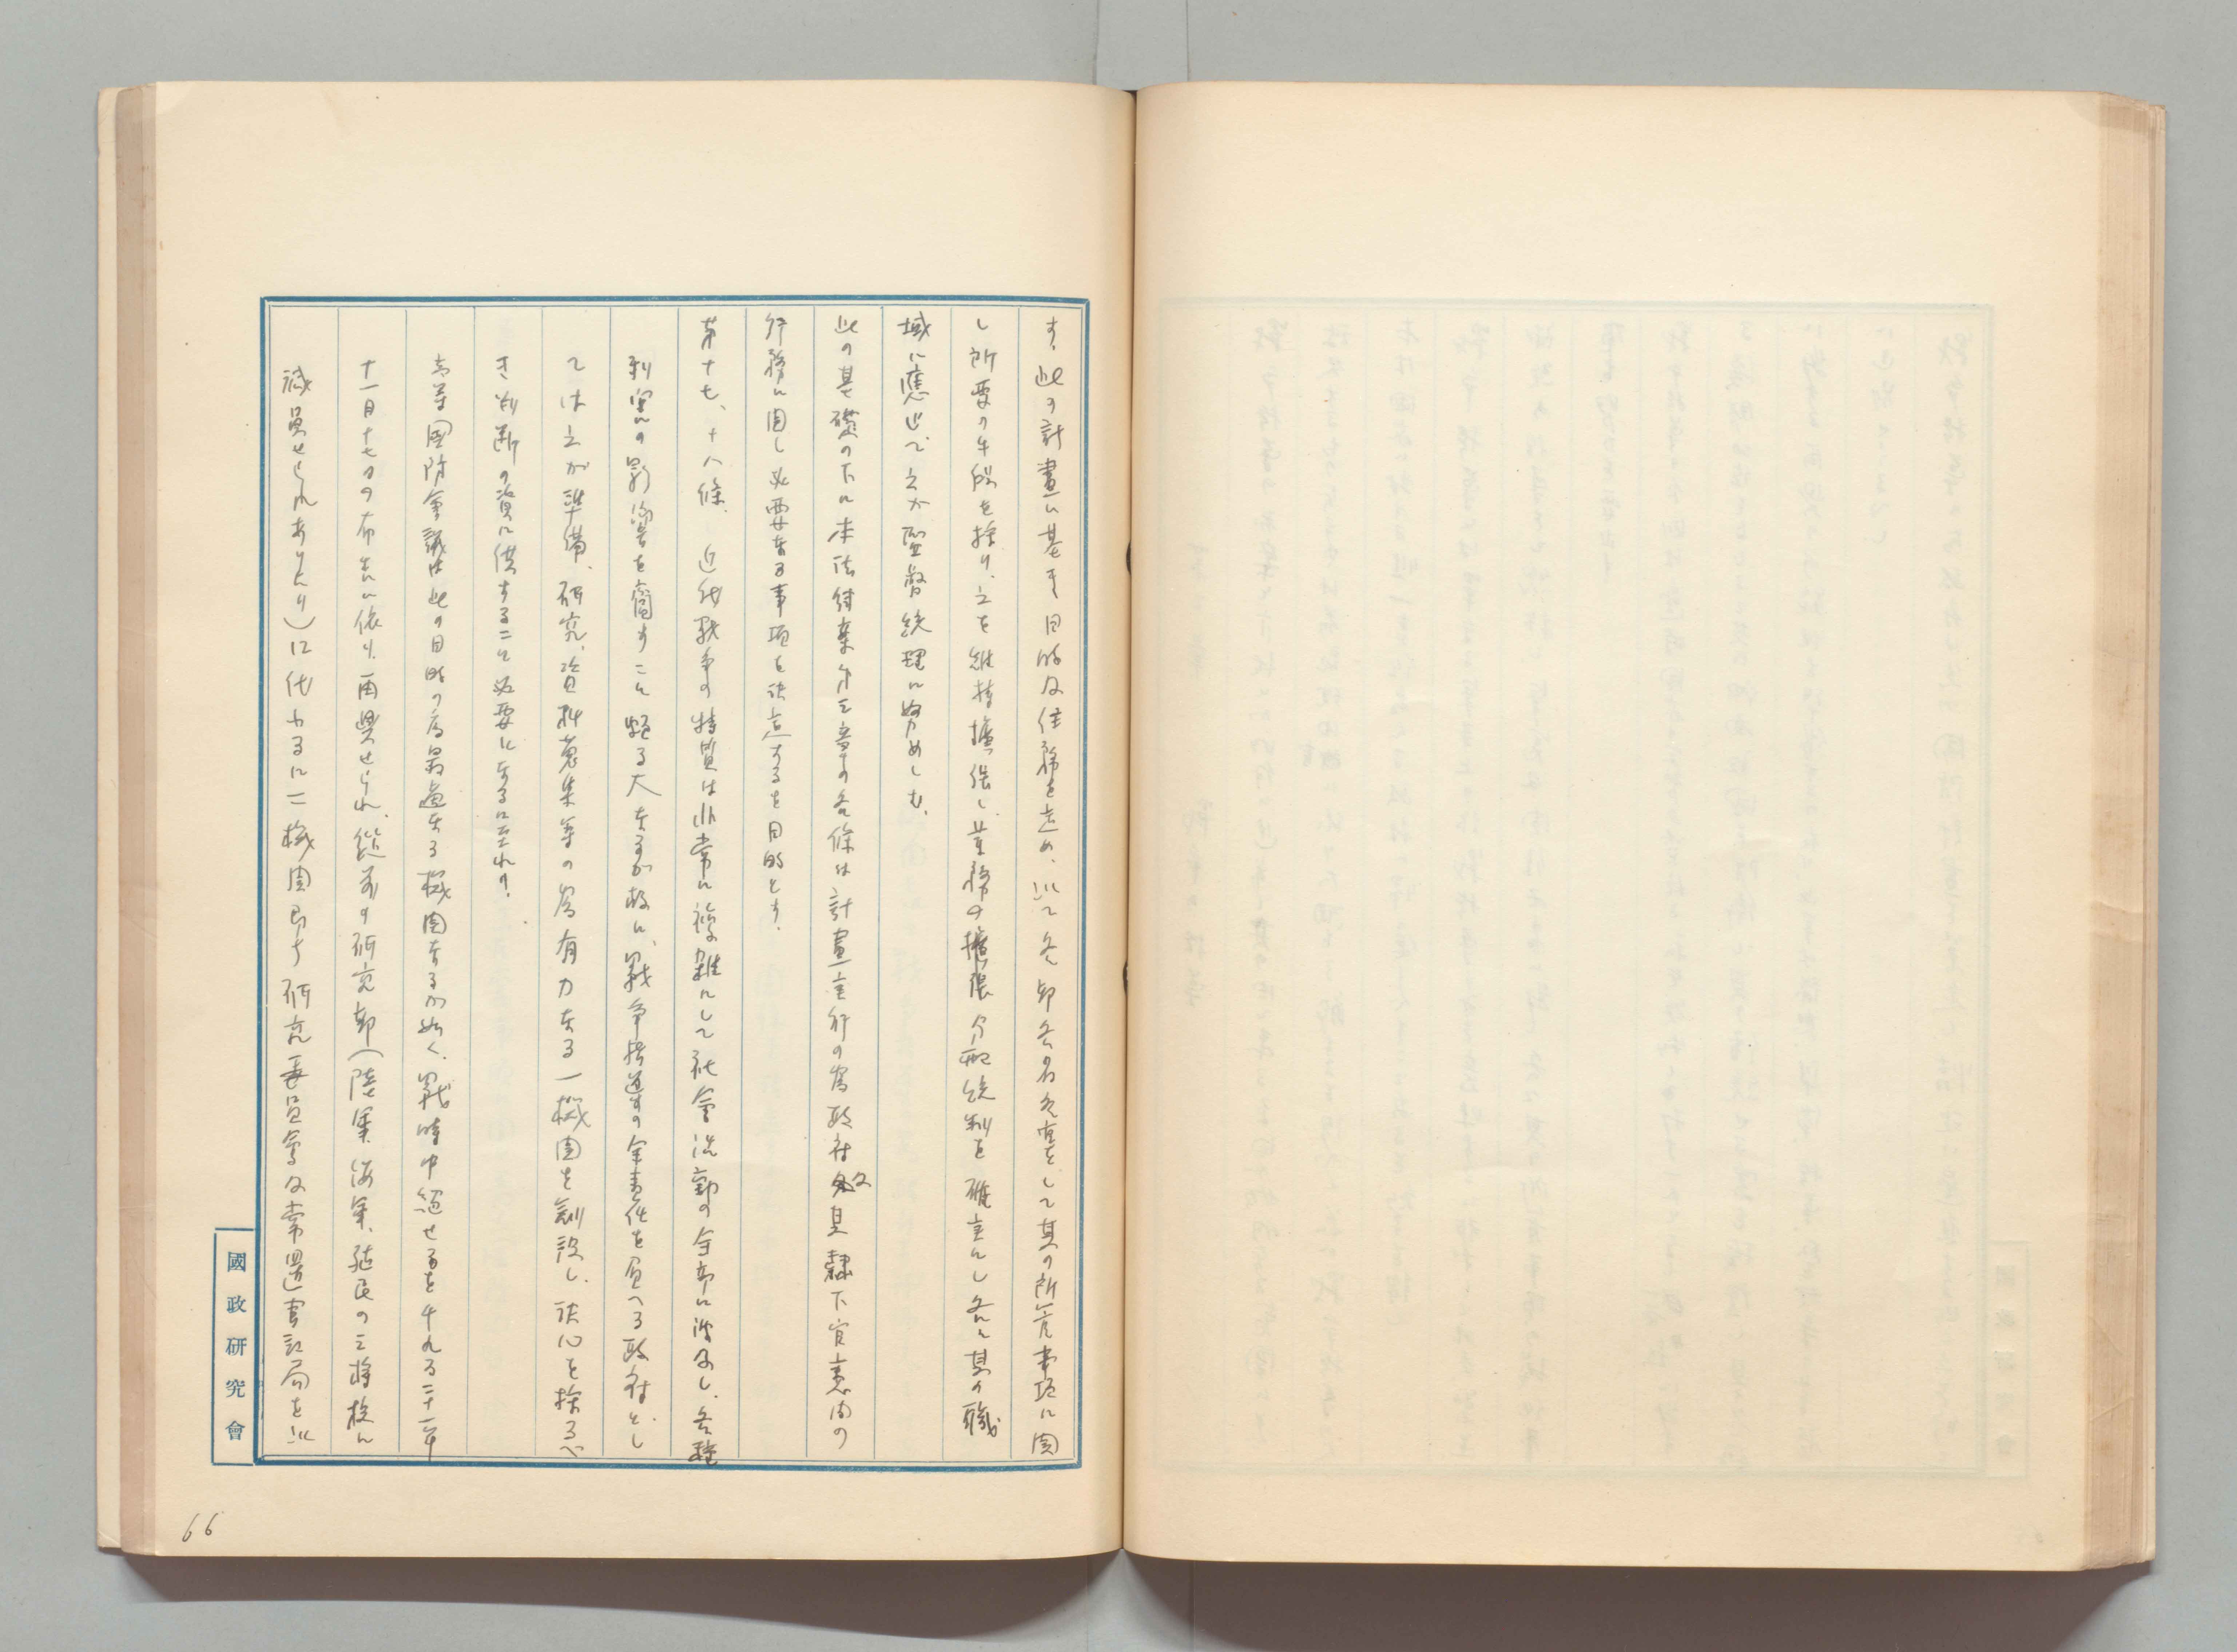 す、此の計畫に基き目的及任務を定め、以て各部各省各庁をして其の所管事項に関
し所要の手段を採り、之を維持擴張し、業務の擴張分配統制を確立にし各々其の職
域に應じて之が監督統理に努めしむ、
此の基礎の下に本法律案第三章の各條は計畫立行の為政府及其隷下官憲内の
行務に関し必要なる事項を決定するを目的とす、
第十七、十八條、近代戦争の特質は非常に複雑にして社會活動の全部に波及し、各種
利害の影響を齎すこと頗る大なるが故に、戦争指導の全責任を負へる政府としては
ては之が準備、研究、資料蒐集等の為有力なる一機関を創設し、決心を採るべ
き判断の資に供すること必要となるに至れり、
高等國防會議は此の目的の為最適なる機関なるが如く、戦時中絶せるを千九百二十一年
十一月十七日の布告に依り、再興せられ、従前の研究部(陸軍、海軍、殖民の三将校に
減員せられありたり)に代わるに二機関即ち研究委員會及常置書記局を以
國政研究會
66